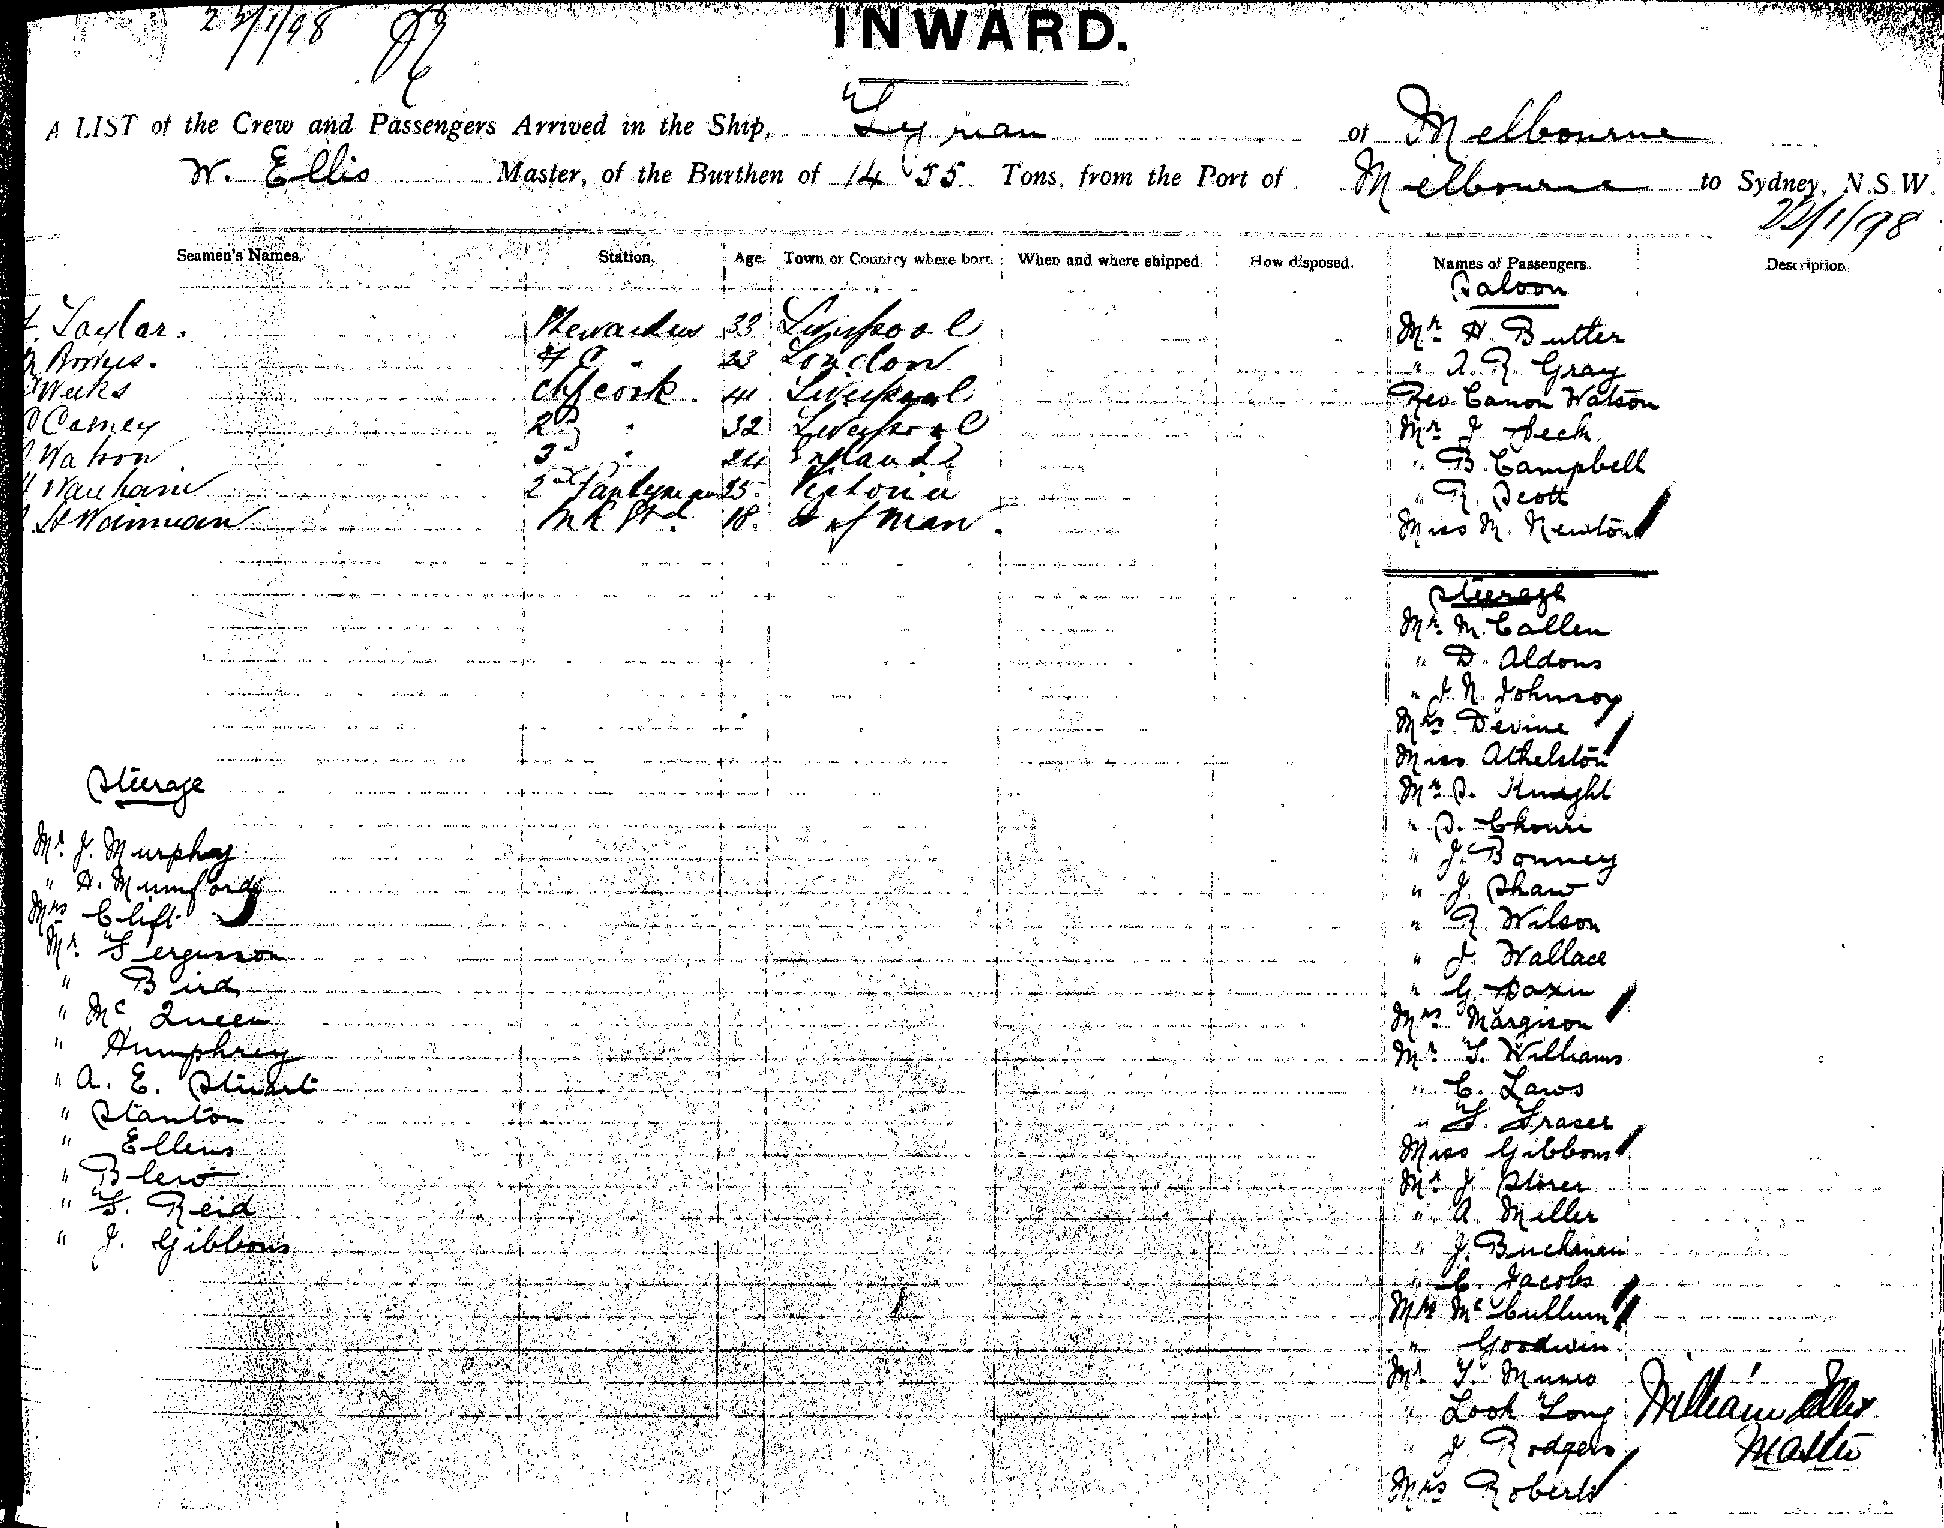 22/1/98
INWARD.
A LIST of the Crew and Passengers Arrived in the Ship, Tyrian of Melbourne
W. Ellis Master, of the Burthen of 1455 Tons, from the Port of Melbourne to Sydney, N.S.W.
22/1/98
Seamen's Names. Station. Age. Town or Country where born. When and where shipped. How disposed. Names of Passengers. Description.
Saloon
Taylor. 33 Liverpool Mr H. Butter
23 London " A. R. Gray
Weeks cook 41 Liverpool Rev Canon Watson
2d " 32 Liverpool Mr J
Watson 3d " 24 " B. Campbell
2nd Pantryman 25 Victoria " R. Scott
18 of Man Miss M. Newton
Steerage
Mr M. Callen
" D. Aldous
" J. N. Johnson
Mrs Devine
Miss Athelston
Mr S. Knight
" S.
" J. Bonney
" J. Shaw
" R. Wilson
" J. Wallace
" G.
Mrs Margison
Mr T. Williams
" C. Laws
" F. Fraser
Miss Gibbons
Mr J. Storer
" A. Miller
" J. Buchanan
" C. Jacobs
Mrs McCullum
" Goodwin
Mr T. Munro
" Look Tong
" J. Rodgers
Mrs Roberts
Steerage
Mr J. Murphy
" H. Mumford
Mrs Clift
Mr Fergusson
" Bird
" McQueen
" Humphrey
" A. E. Stuart
" Stanton
" Ellens
" Blew
" F. Reid
" J. Gibbons
William Ellis
Master